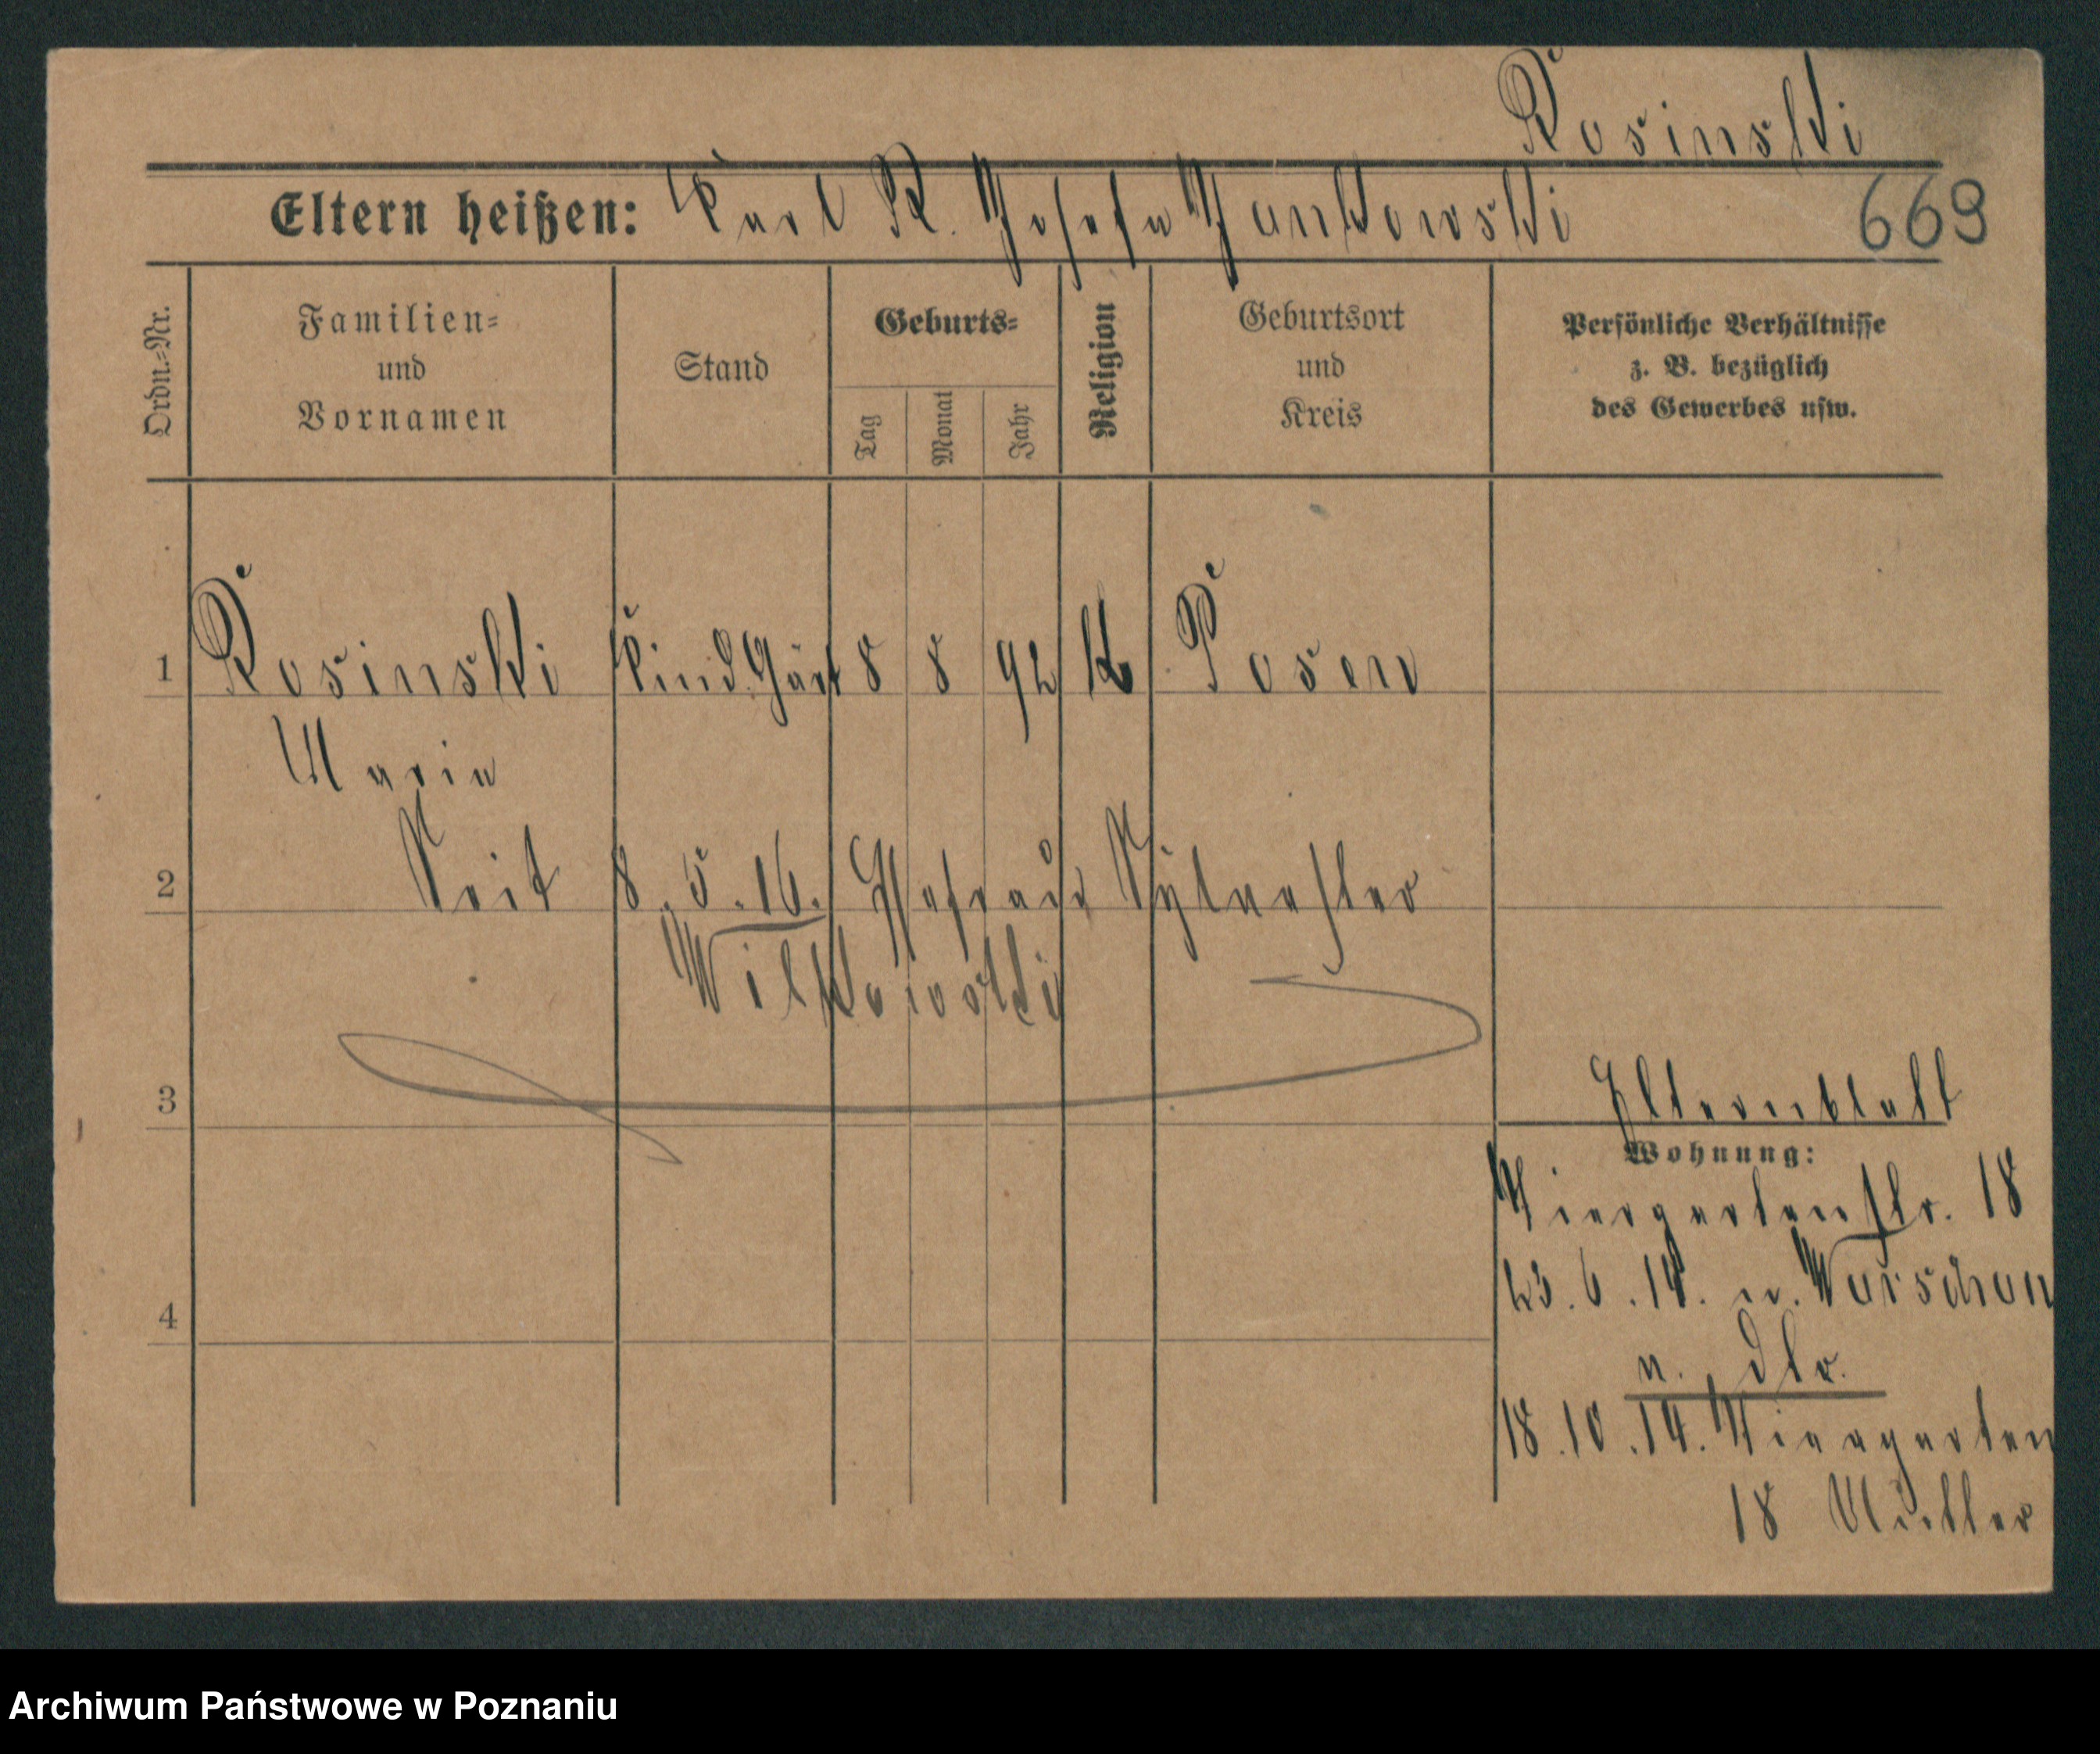 Rosinski
Eltern heißen: Karl R. Josefa Jankowski
669
Ordn.=Nr.
Familien= und Vornamen
Stand
Geburts=
Tag
Monat
Jahr
Religion
Geburtsort und Kreis
Persönliche Verhältnisse
z. B. bezüglich
des Gewerbes usw.
1 Rosinski Kind.Gärt 8 8 92 k Posen
Maria
2 Seit 8.5.16. Ehefrau Sylvester
Wilkowski
3
Elternblatt
Wohnung:
Tiergartenstr. 18
23.6.14. n. Warschau
4
18.10.14. Tiergarten
18 Mutter
Archiwum Państwowe w Poznaniu